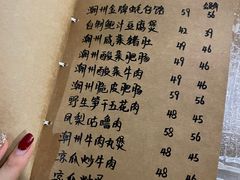 会员价
潮州金牌蚝仔烙 59 56
自制鲍汁豆腐煲 42 39
潮州咸菜猪肚 49 46
潮州酸菜肥肠 49 46
潮州酸菜牛肉 49 46
潮州脆皮肥肠 49 46
野生笋干五花肉 49 46
凤梨咕噜肉 48 45
潮州牛肉丸煲 58 56
凉瓜炒牛肉
凉瓜炒